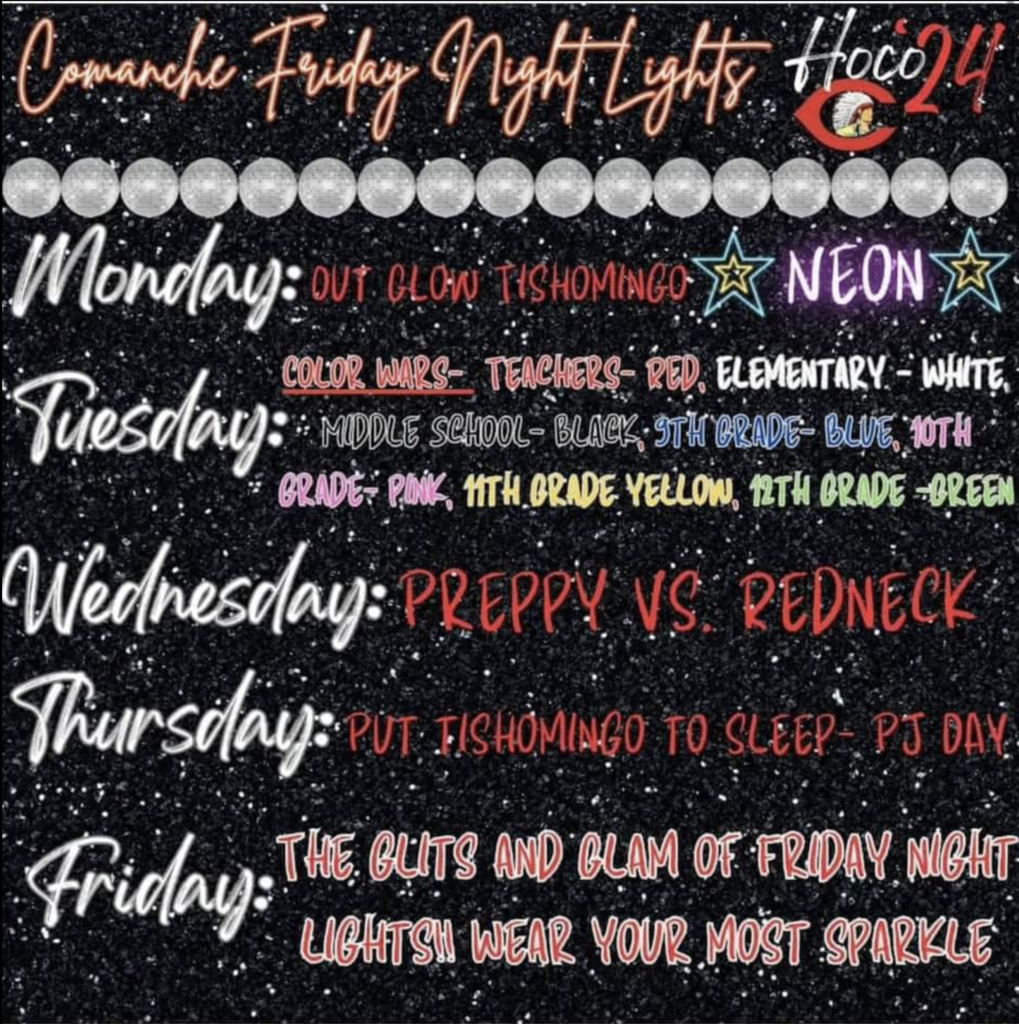 Comanche Friday Night Lights Hoco '24
Monday: OUT GLOW TISHOMINGO NEON
COLOR WARS- TEACHERS- RED, ELEMENTARY - WHITE,
Tuesday: MIDDLE SCHOOL- BLACK, 9TH GRADE- BLUE, 10TH
GRADE- PINK, 11TH GRADE YELLOW, 12TH GRADE -GREEN
Wednesday: PREPPY VS. REDNECK
Thursday: PUT TISHOMINGO TO SLEEP- PJ DAY
Friday: THE GLITS AND GLAM OF FRIDAY NIGHT
LIGHTS!! WEAR YOUR MOST SPARKLE